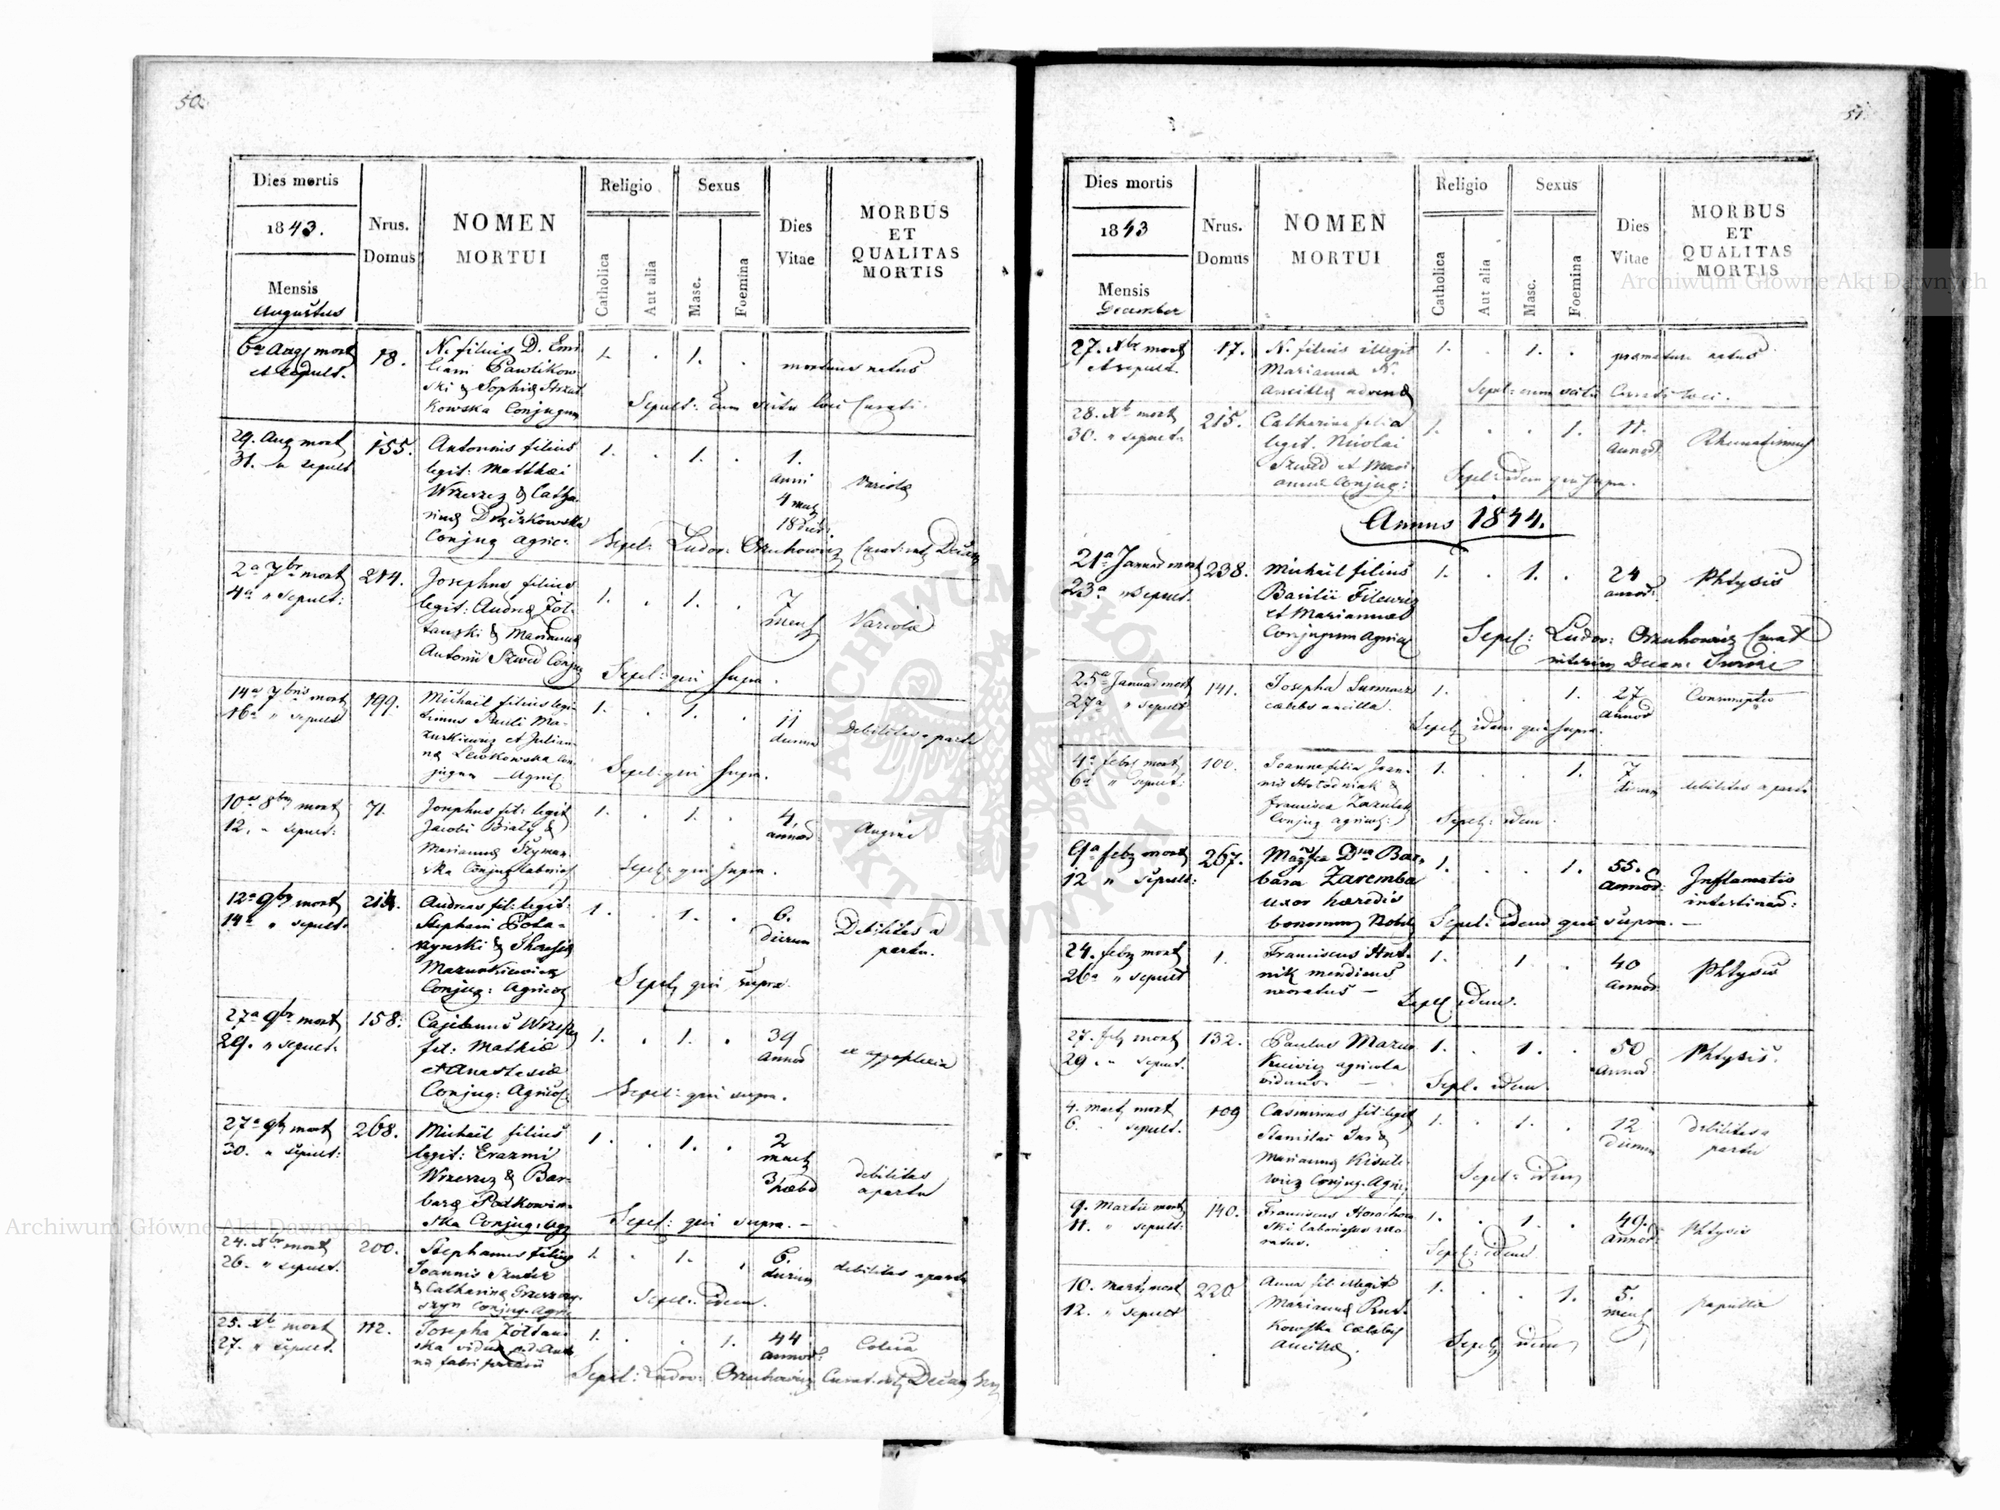 50.
Dies mortis
1843.
Mensis
Augustus
Nrus.
Domus
NOMEN
MORTUI
Religio
Catholica
Aut alia
Sexus
Masc.
Foemina
Dies
Vitae
MORBUS
ET
QUALITAS
MORTIS
6a Aug mort
et sepult.
18.
N. filius D. Emi
liani Pawlikow
ski & Sophiæ
kowska Conjugum
1. . 1. .
mortuus natus
Sepult: cum scitu loci Curati.
29. Aug mort
31. " sepult
155.
Antonius filius
legit: Matthæi
Wrzeszcz & Catha
rinæ
Conjug agric:
1. . 1. .
1.
anni
4 mens
18 dier:
Variola
Sepel: Ludov: Orzuhowicz
2a 7br mort
4a " sepult:
214.
Josephus filius
legit: Andreæ Żoł
tański & Mariannæ
Antonii Szwed Conjug
1. . 1. .
7
mens
Variola
Sepel: qui supra.
14a 7bris mort
16a " sepult
199.
Michaël filius legi
timus Pauli Ma-
zurkiewicz et Julian-
næ Lewkowska Con
jugum - Agric
1. . 1. .
11
dierum
Debilitas a partu
Sepel: qui supra.
10a 8bris mort
12. " sepult:
71.
Josephus fil: legit
Jacobi Biały &
Mariannæ Szyman
ska Conjug laborios
1. . 1. .
4
annor:
Angina
Sepel: qui supra.
12a 9bris mort
14a " sepult:
214.
Andreas fil: legit:
Stephani Pota-
rzynski & Theresiæ
Mazurkiewicz
Conjug: Agricol
1. . 1. .
6.
dierum
Debilitas a
partu.
Sepel qui supra.
27a 9br mort
29. " sepult:
158.
Cajetanus Wrzeszcz
fil: Mathiæ
et Anastasiæ
Conjug: Agricol
1. . 1. .
39
annor
ex apoplexia
Sepel: qui supra.
27a 9br mort
30. " sepult:
268.
Michaël filius
legit: Erazmi
Wrzeszcz & Bar-
baræ Podkowin-
ska Conjug:
1. . 1. .
2
mens
3 hebd
debilitas
a partu
Sepel: qui supra. -
24. Xbr mort
26. " sepult.
200.
Stephanus filius
Joannis
& Catharinæ Grzeszczy-
szyn Conjug. Agric.
1. . 1. .
6.
dierum
debilitas a partu
Sepel: idem.
25. Xb mort
27. " sepult.
112.
Josepha Żółtań-
ska vidua
fabri
1. . . 1.
44
annor:
Colica
Sepel: Ludov: Orzuhowicz Curat.
51.
Dies mortis
1843
Mensis
December
Nrus.
Domus
NOMEN
MORTUI
Religio
Catholica
Aut alia
Sexus
Masc.
Foemina
Dies
Vitae
MORBUS
ET
QUALITAS
MORTIS
27. Xbr mort
et sepult.
17.
N. filius illegit
Marianna N.
Ancillæ advenæ
1. . 1. .
præmature natus
Sepel: cum scitu Curati loci.
28. Xb mort
30. " sepult:
215.
Catharina filia
legit. Nicolai
Szwed et Mari-
annæ Conjug:
1. . . 1.
11.
annor
Rheumatismus
Sepel: idem qui supra.
Annus 1844.
21a Januar mort
23a " sepult.
238.
Michaël filius
Basilii Filewicz
et Mariannæ
Conjugum Agricol
1. . 1. .
24
annor:
Phtysis
Sepel: Ludov: Orzuhowicz Curat
interim Decan:
25a Januar mort
27a " sepult
141.
Josepha
cælebs ancilla.
1. . . 1.
27
annor
Consumptio
Sepel idem qui supra.
4a febr mort
6a " sepult:
100.
Joanna filia Joan-
nis Hołodniak &
Francisca
Conjug agricol:
1. . . 1.
7
dierum
debilitas a partu
Sepel: idem.
9a febr mort
12 " sepult:
267.
Magfica Dna Bar-
bara Zaremba
uxor hæredis
bonorum
1. . . 1.
55.
annor:
Inflamatio
intestinor:
Sepel: idem qui supra. -
24. febr mort
26a " sepult
1.
Franciscus
nik mendicus
uxoratus -
1. . 1. .
40
annor
Phtysis
Sepel idem.
27. feb mort
29. " sepult.
132.
Paulus Mazur
kiewicz agricola
viduus. -
1. . 1. .
50
annor
Phtysis.
Sepel. idem
4. Mart mort
6. " sepult.
109
Casimirus fil: legit
Stanislai &
Mariannæ Kisiele-
wicz Conjug. Agric.
1. . 1. .
12
dierum
debilitas a
partu
Sepel: idem
9. Martii mort
11. " sepult:
140.
Franciscus Horachow
ski laboriosus uxo
ratus.
1. . 1. .
49.
annor:
Phtysis
Sepel: idem
10. Mart. mort
12. " sepult
220
Anna fil: illegit
Mariannæ Rut-
kowska Cælebs
Ancillæ.
1. . . 1.
5.
mens
papulla
Sepel idem
Archiwum Główne Akt Dawnych
ARCHIWUM GŁÓWNE
AKT DAWNYCH
Archiwum Główne Akt Dawnych